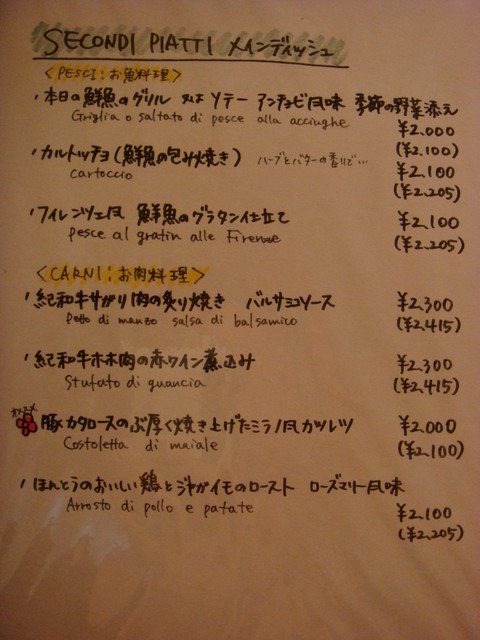 SECONDI PIATTI メインディッシュ
<PESCI:お魚料理>
・本日の鮮魚のグリル 又は ソテー アンチョビ風味 季節の野菜添え
Griglia o saltato di pesce alla acciughe
¥2.000
(¥2.100)
・カルトッチョ(鮮魚の包み焼き) ハーブとバターの香りで…
cartoccio
¥2.100
(¥2.205)
・フィレンツェ風 鮮魚のグラタン仕立て
pesce al gratin alle Firenze
¥2.100
(¥2.205)
<CARNI:お肉料理>
・紀和牛サガリ肉の炙り焼き バルサミコソース
Petto di manzo salsa di balsamico
¥2.300
(¥2.415)
・紀和牛ホホ肉の赤ワイン煮込み
Stufato di guancia
¥2.300
(¥2.415)
オススメ
豚カタロースのぶ厚く焼き上げたミラノ風カツレツ
Costoletta di maiale
¥2.000
(¥2.100)
・ほんとうのおいしい鶏とジャガイモのロースト ローズマリー風味
Arrosto di pollo e patate
¥2.100
(¥2.205)